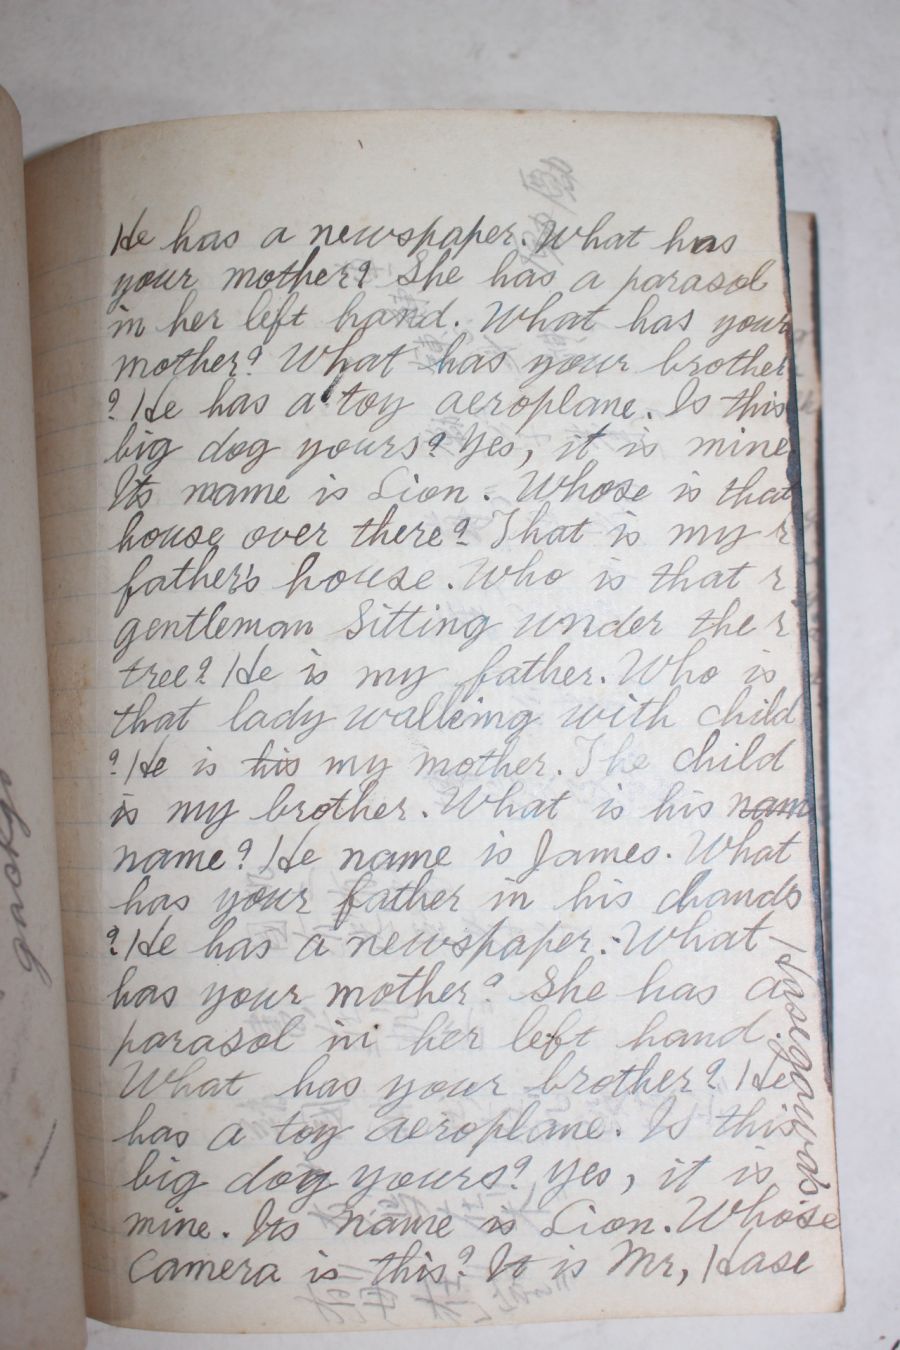 He has a newspaper. What has
your mother? She has a parasol
in her left hand. What has your
mother? What has your brother
? He has a toy aeroplane. Is this
big dog yours? Yes, it is mine
Its name is Lion. Whose is that
house over there? That is my r
father's house. Who is that r
gentleman Sitting under the r
tree? He is my father. Who is
that lady walking with child
? He is his my mother. The child
is my brother. What is his nam
name? He name is James. What
has your father in his chands
? He has a newspaper. What
has your mother? She has a
parasol in her left hand.
What has your brother? He
has a toy aeroplane. Is this
big dog yours? Yes, it is
mine. Its name is Lion. Whose
camera is this? It is Mr, Hase
Hasegawas.